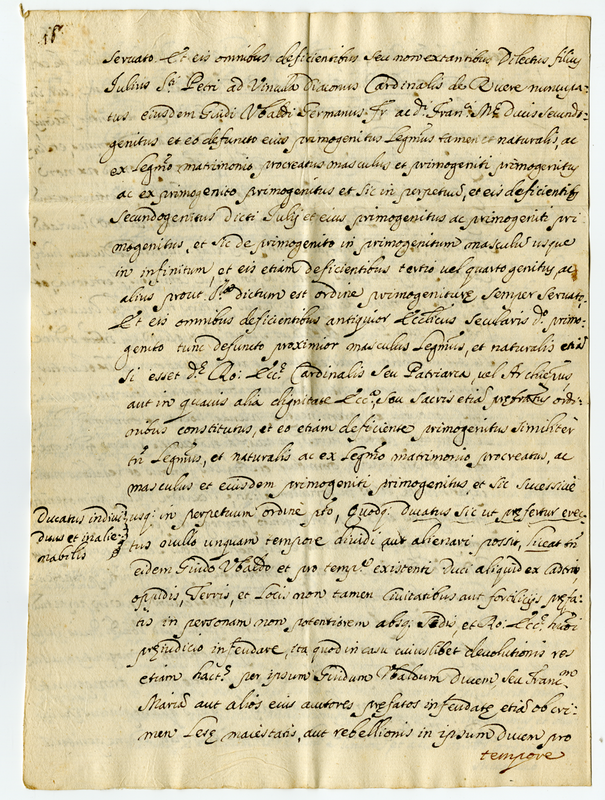 16
servato. Et eis omnibus deficientibus seu non extantibus Dilectus filius
Iulius S.ti Petri ad Vincula Diaconus Cardinalis de Ruere nuncupa-
tus eiusdem Guidi Vbaldi Germanus fr. ac d.i Fran.ci M.e Ducis secundo-
genitus et eo defuncto eius primogenitus Legm̃us tamen et naturalis, ac
ex Legm̃o matrimonio procreatus masculus et primogeniti primogenitus
ac ex primogenito primogenitus et sic in perpetuũ, et eis deficientib.
secundogenitus dicti Iulij et eius primogenitus ac primogeniti pri
mogenitus, et sic de primogenito in primogenitum masculũ usque
in infinitum et eis etiam deficientibus tertio vel quarto genitus, ac
alius prout s.a dictum est ordine primogeniturę semper servato.
Et eis omnibus deficientibus antiquior Ecc.licus secularis d.o primo-
genito tunc defuncto proximior masculus Legm̃us, et naturalis etiã
si esset d.ę Ro: Ecc.ę Cardinalis seu Patriarca, vel Archiep̃us
aut in quavis alia dignitate Ecc.ca, seu sacris etiã prędictus ordi-
nibus constitutus, et eo etiam deficiente primogenitus similiter
tñ Legm̃us, et naturalis ac ex Legm̃o matrimonio procreatus, ac
masculus et eiusdem primogeniti primogenitus, et sic successivè
Ducatus indivi-
duus et inalie-
nabilis
usq; in perpetuum ordine p̃to, Quodq; Ducatus sic ut pręfertur erec-
tus nullo unquam tempore dividi aut alienari possit, liceat tñ
eidem Guido Vbaldo et pro temp.e existenti Duci aliquid ex Castris,
oppidis, Terris, et Locis non tamen Civitatibus aut fortilitijs pręfa-
tis in personam non potentiorem absq; Sedis, et Ro: Ecc.ę hmõi
pręiudicio infeudare, ita quod in casu cuiuslibet devolutionis res
etiam hact.s per ipsum Guidum Vbaldum Ducem seu Franc.um
Mariã aut alios eius auctores pręfatos infeudatę etiã ob cri-
men Lesę maiestatis, aut rebellionis in ipsum Ducem pro
tempore